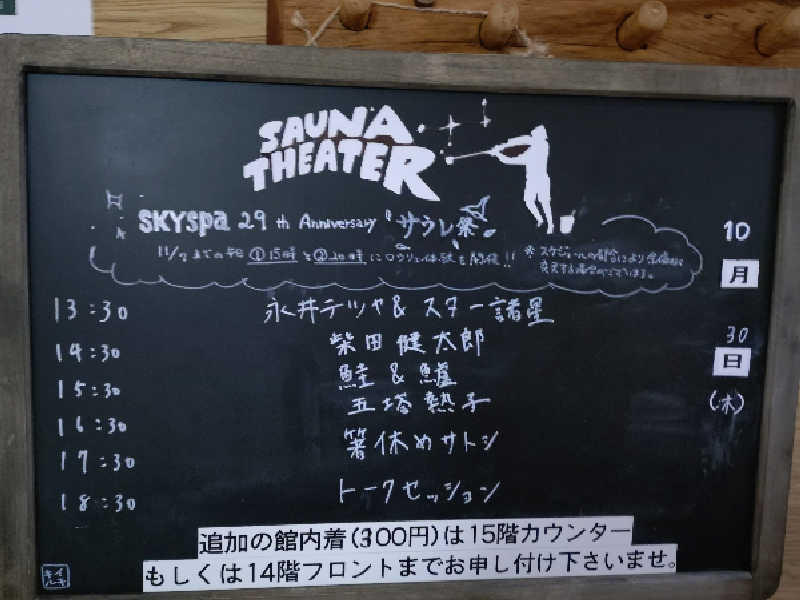 SAUNA
THEATER
SKYSPA 29th Anniversary 「サウレ祭」
11/7までの毎日 ①15時と②20時にロウリュ体験を開催!!
10
月
30
日
(木)
13:30 永井テツヤ& スター諸星
14:30 柴田健太郎
15:30 鮭&鱸
16:30 五塔熱子
17:30 箸休めサトシ
18:30 トークセッション
追加の館内着(300円)は15階カウンター
もしくは14階フロントまでお申し付け下さいませ。